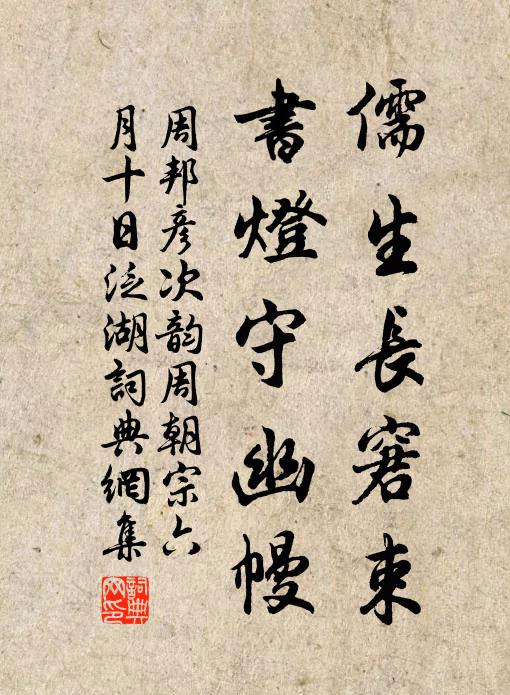 儒生長窘束
書燈守幽幔
周邦彦次韵周朝宗六
月十日泛湖詞典網集
詞典网印